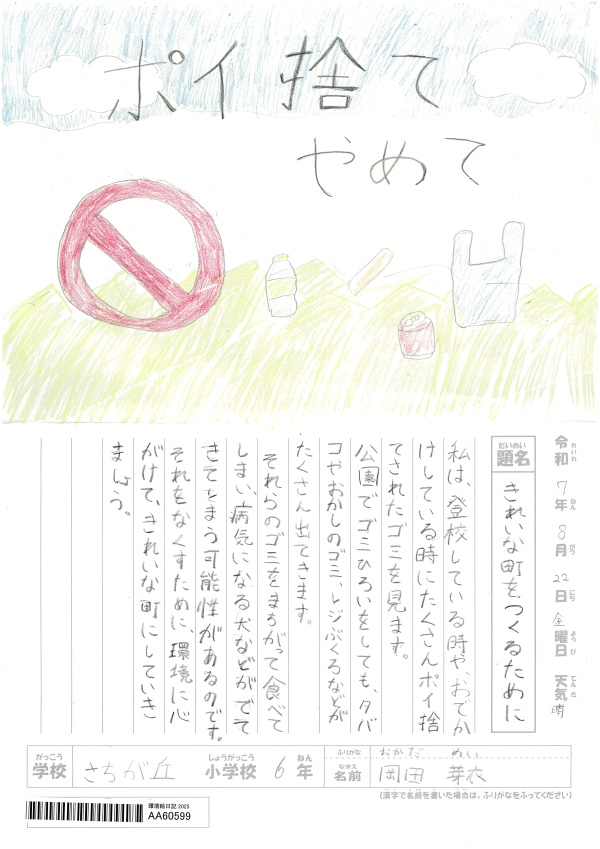 ポイ捨て
やめて
令和7年8月22日金曜日 天気 晴
れいわ ねん がつ にち ようび てんき
だいめい
題名 きれいな町をつくるために
私は、登校している時や、おでか
けしている時にたくさんポイ捨
てされたゴミを見ます。
公園でゴミひろいをしても、タバ
コやおかしのゴミ、レジぶくろなどが
たくさん出てきます。
それらのゴミをまちがって食べて
しまい、病気になる犬などがでて
きてしまう可能性があるのです。
それをなくすために、環境に心
がけて、きれいな町にしていき
ましょう。
がっこう しょうがっこう ねん
学校 さちが丘 小学校 6年
ふりがな おかだ めい
なまえ
名前 岡田 芽衣
(漢字で名前を書いた場合は、ふりがなをふってください)
環境絵日記 2025
AA60599